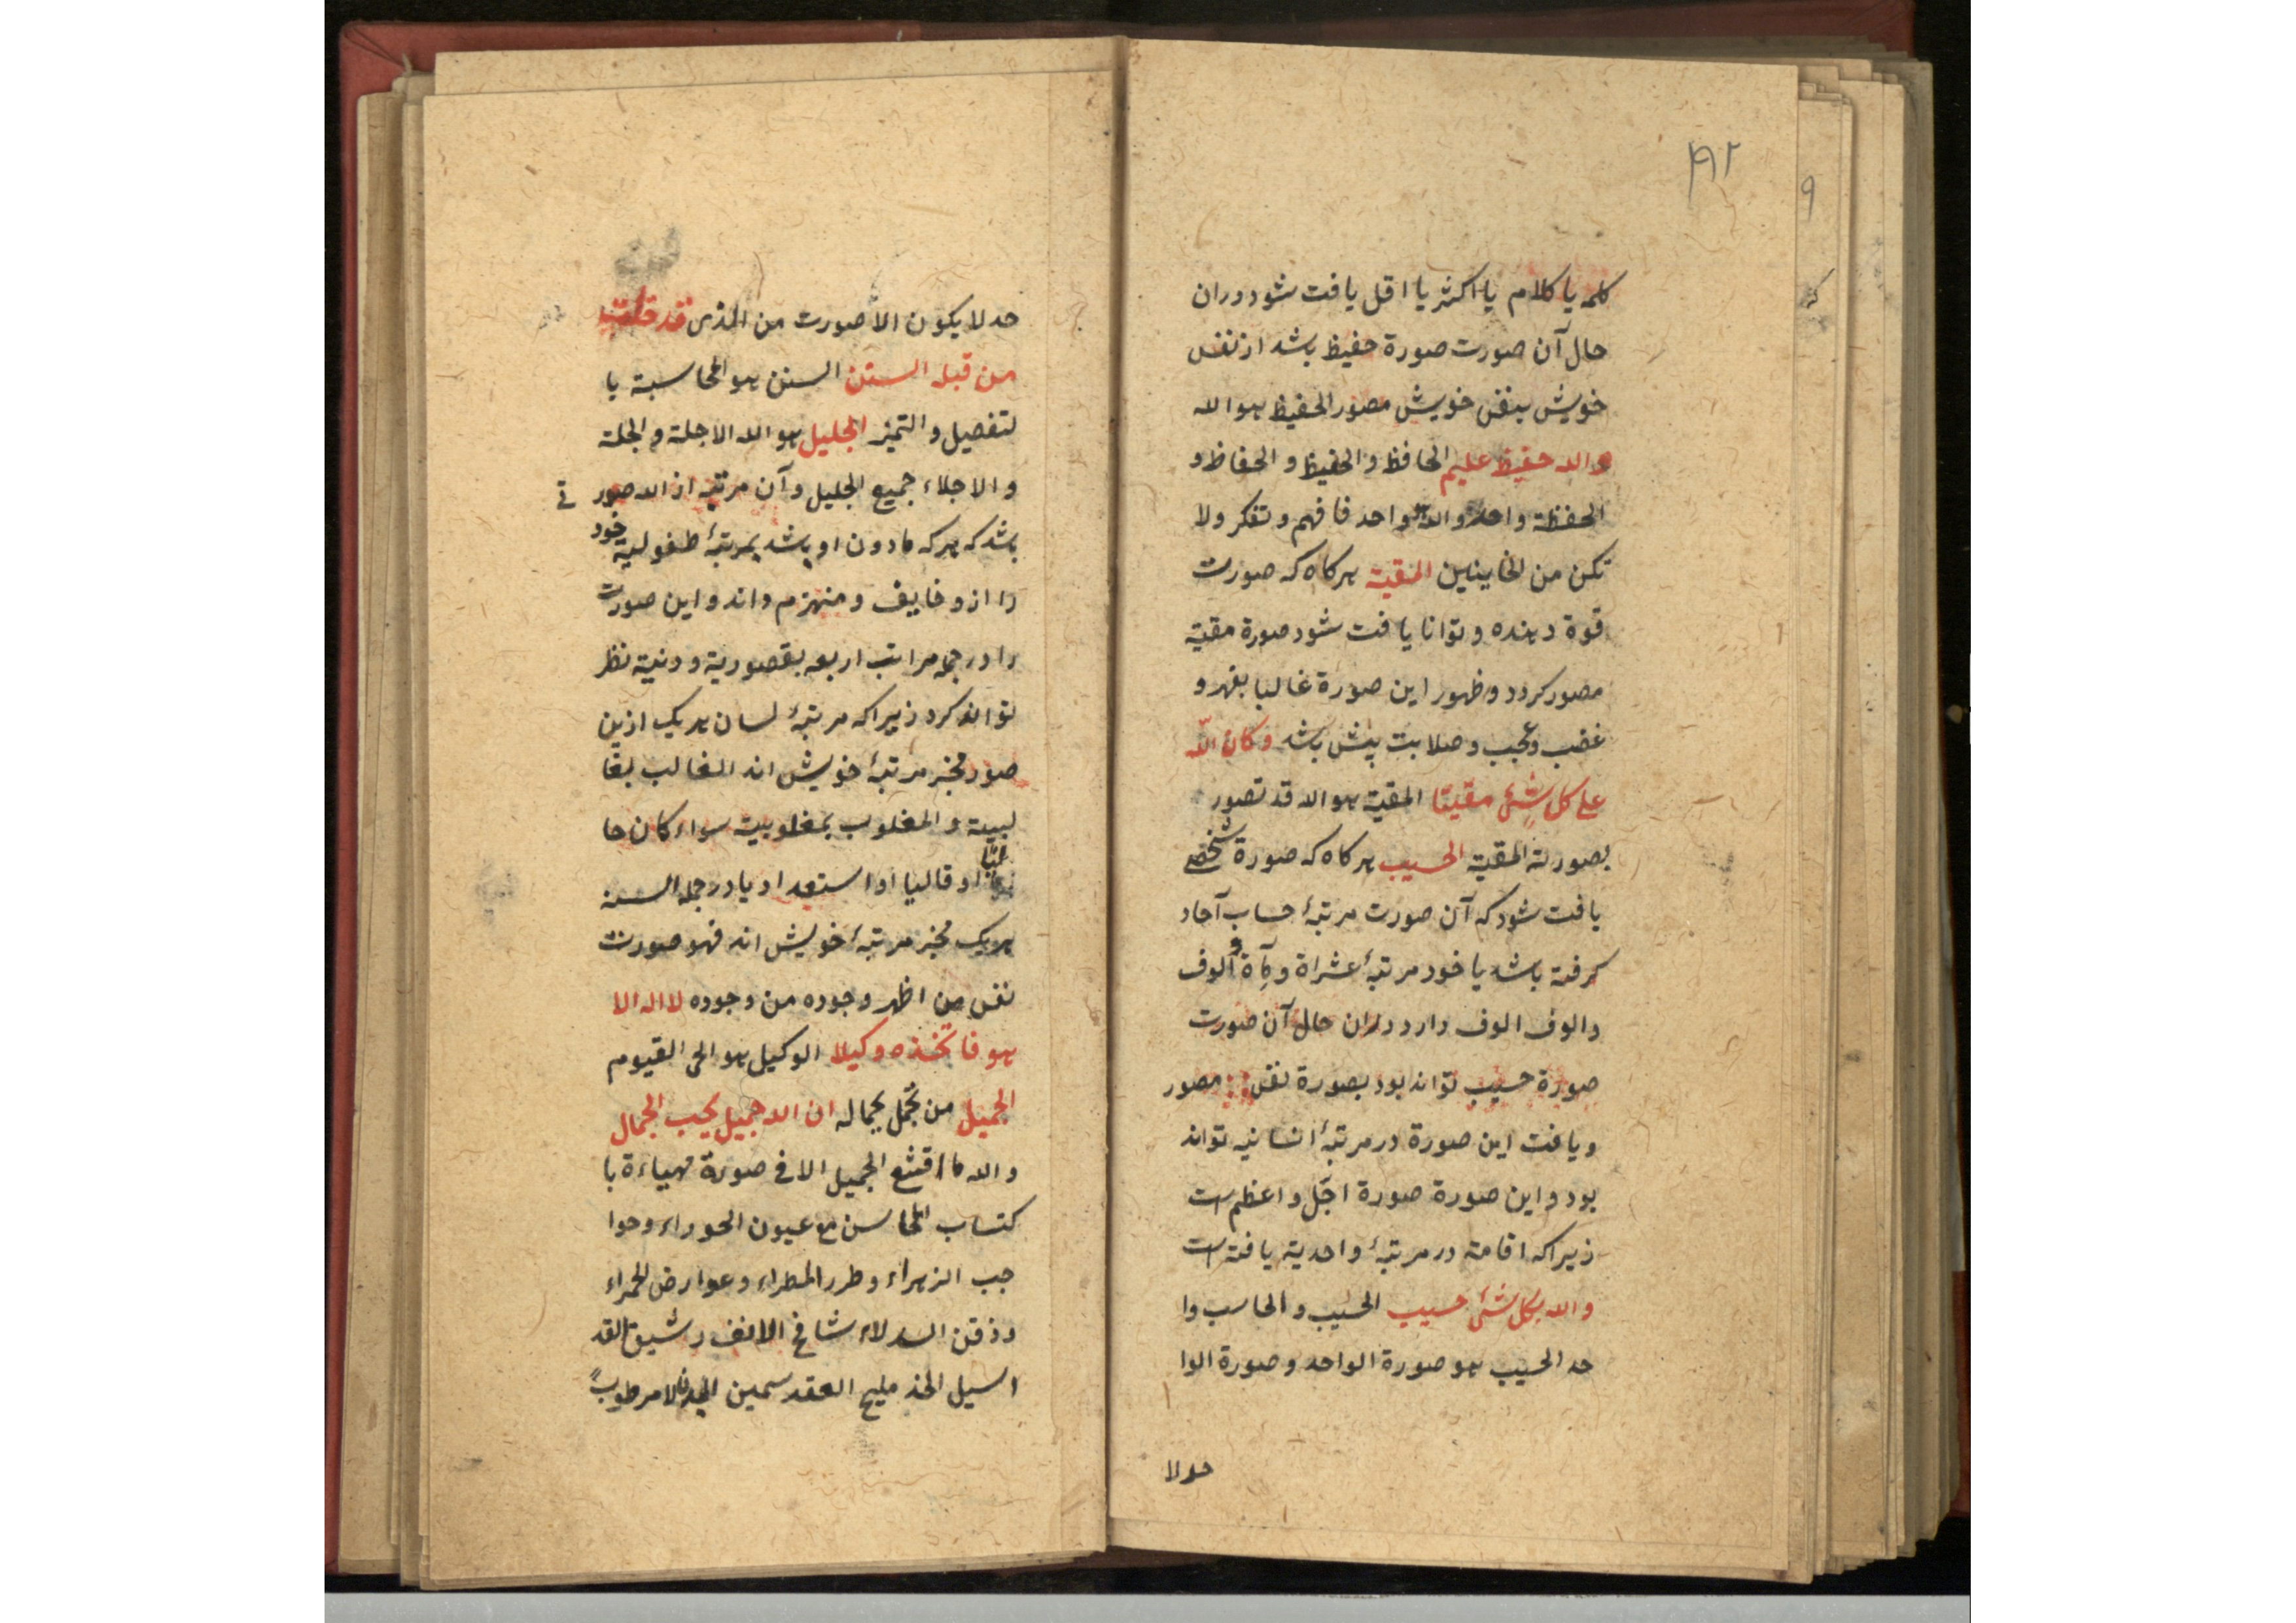 ۱۹۲
کلمه یا کلام یا اکثر یا اقل یافت شود دران
حال آن صورت صورة حفیظ باشد از نفس
خویش بنفس خویش مصور الحفیظ هو الله
و الله حفیظ علیم الحافظ و الحفیظ و الحفاظ و
الحفظة واحد و الله واحد فافهم و تفکر ولا
تکن من الخاینین المقیة هرکاه که صورت
قوة دهنده و توانا یافت شود صورة مقیة
مصور کردد و ظهور این صورة غالبا بقهر و
غضب و عجب و صلابت پیش باشد وکان الله
علی کل شیء مقیتا المقیة هو الله قد تصور
بصورته المقیة الحسیب هرکاه که صورة شخصی
یافت شود که آن صورت مرتبهٔ حساب آحاد
کرفته باشد یا خود مرتبهٔ عشراة و مآة و الوف
و الوف الوف دارد دران حال آن صورت
صورة حسیب تواند بود بصورة نفس مصور
و یافت این صورة در مرتبهٔ انسانیه تواند
بود و این صورة صورة اجل و اعظم است
زیراکه اقامة در مرتبهٔ واحدیة یافته است
و الله بکل شیء حسیب الحسیب و الحاسب وا
حد الحسیب هو صورة الواحد و صورة الوا
حد لا
حد لا یکون الا صورت من الذی قد خلت
من قبله السنن السنن هو المحاسبة با
لتفصیل و التمیز الجلیل هو الله الاجلة و الجلة
و الاجلاء جمیع الجلیل و آن مرتبه از الله صور تے
باشد که هرکه مادون او باشد بمرتبهٔ طفولیة خود
را ازو خایف و منهزم داند و این صورت
را در جمله مراتب اربعه بقصوریة و دنیة نظر
تواند کرد زیراکه مرتبهٔ لسان هریک ازین
صور مخبر مرتبهٔ خویش اند الغالب بغا
لبیة و المغلوب بمغلوبیة سواء کان حا
لیا او قالیا او استعداد یا در جمله السنه
هریک مخبر مرتبهٔ خویش اند فهو صورت
نفس من اظهر وجوده من وجوده لا اله الا
هو فاتخذه وکیلا الوکیل هو الحی القیوم
الجمیل من تجمل بجماله ان الله جمیل یحب الجمال
و الله ما اقنع الجمیل الا فی صورة مهیاءة با
کتساب المحاسن مع عیون الحوراء و حوا
جب الزهراء و طرر المطراء و عوارض الحمراء
و ذقن السدلاء شامخ الانف رشیق القد
اسیل الخد ملیح العقد سمین البدن لا مرطوب